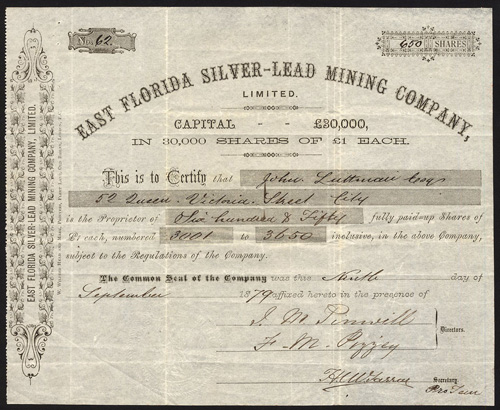 No. 62.
650 SHARES
EAST FLORIDA SILVER-LEAD MINING COMPANY,
LIMITED.
CAPITAL - - £30,000,
IN 30,000 SHARES OF £1 EACH.
This is to Certify that John Luttman Esqr
52 Queen Victoria Street City
is the Proprietor of Six hundred & Fifty fully paid-up Shares of
£1 each, numbered 3001 to 3650 inclusive, in the above Company,
subject to the Regulations of the Company.
The Common Seal of the Company was this Ninth day of
September 1879 affixed hereto in the presence of
J. W. Pinwill
F. M. Pizzey
Directors.
Secretary
Pro Tem
EAST FLORIDA SILVER-LEAD MINING COMPANY, LIMITED.